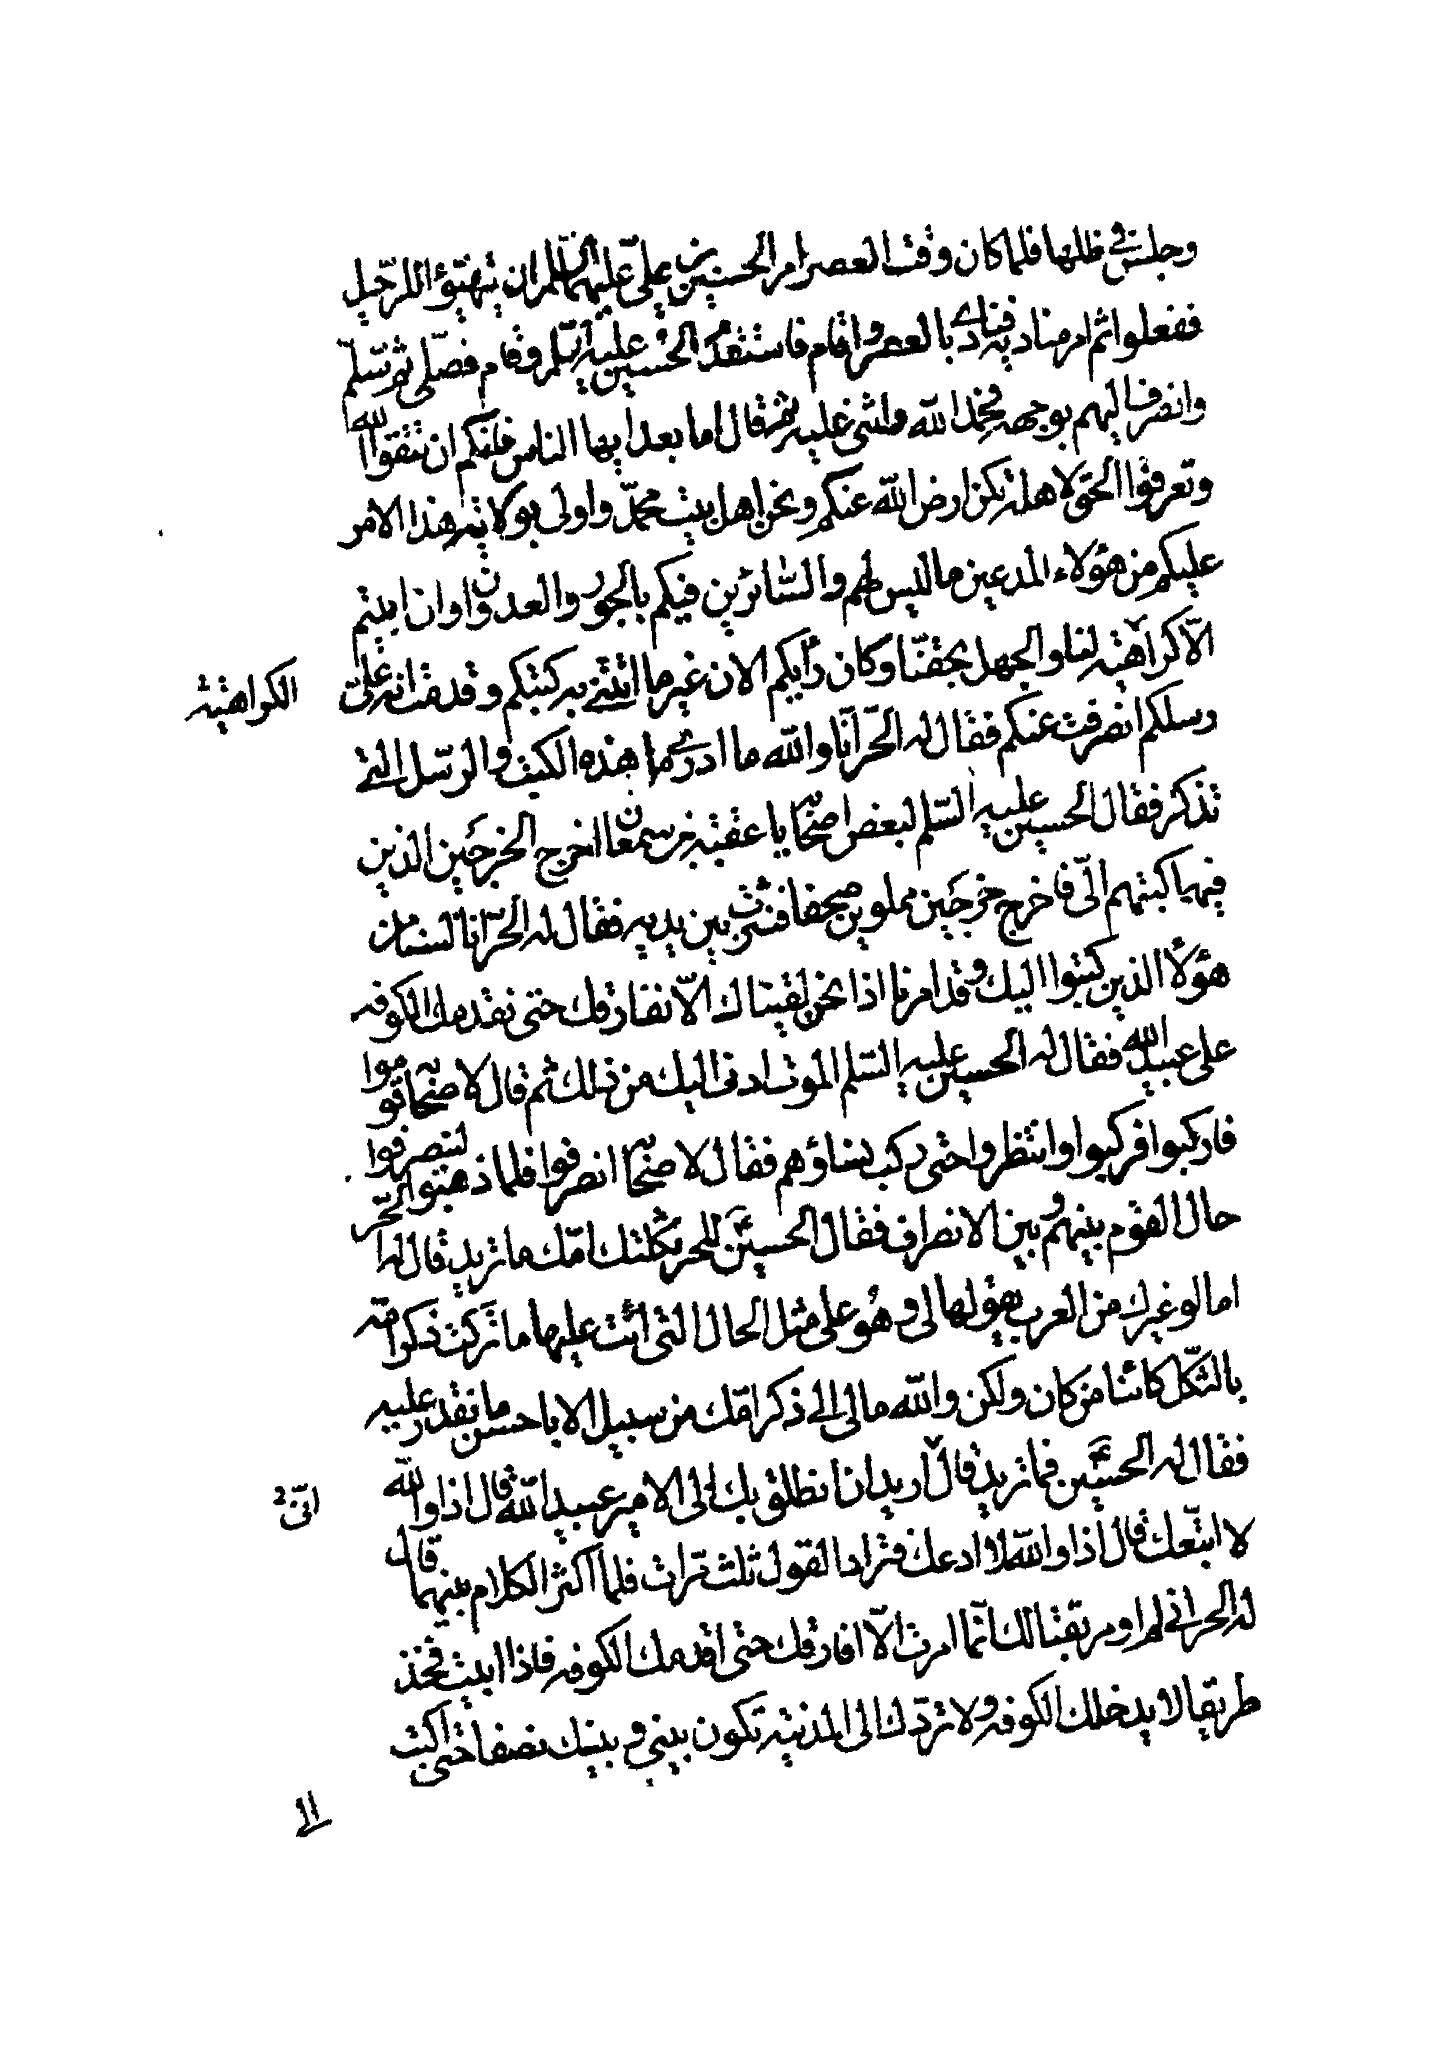 وجلس في ظلها فلما كان وقت العصر امر الحسين بن علي عليهما السلم ان يتهيؤا للرحيل
ففعلوا ثم امر مناديه فنادى بالعصر واقام فاستقدم الحسين عليه السلم وقام فصلى ثم سلم
وانصرف اليهم بوجهه فحمد الله واثنى عليه ثم قال اما بعد ايها الناس فانكم ان تتقوا الله
وتعرفوا الحق لاهله تكن ارض الله عنكم ونحن اهل بيت محمد واولى بولاية هذا الامر
عليكم من هؤلاء المدعين ما ليس لهم والسائرين فيكم بالجور والعدوان وان ابيتم
الا كراهية لنا والجهل بحقنا وكان رأيكم الان غير ما اتتني به كتبكم وقدمت به علي
الكراهية
رسلكم انصرفت عنكم فقال له الحر انا والله ما ادري ما هذه الكتب والرسل التي
تذكر فقال الحسين عليه السلم لبعض اصحابه يا عقبة بن سمعان اخرج الخرجين الذين
فيهما كتبهم الي فاخرج خرجين مملوين صحفا فنثرت بين يديه فقال له الحر انا لسنا من
هؤلا الذين كتبوا اليك وقد امرنا اذا نحن لقيناك الا نفارقك حتى نقدمك الكوفه
على عبيد الله فقال له الحسين عليه السلم الموت ادنى اليك من ذلك ثم قال لاصحابه قوموا
فاركبوا فركبوا وانتظروا حتى ركب نساؤهم فقال لاصحابه انصرفوا فلما ذهبوا لينصرفوا
حال القوم بينهم وبين الانصراف فقال الحسين للحر ثكلتك امك ما تريد قال له الحر
اما لو غيرك من العرب يقولها لي وهو على مثل الحال التي انت عليها ما تركت ذكر امه
بالثكل كائنا من كان ولكن والله مالي الى ذكر امك من سبيل الا باحسن ما نقدر عليه
فقال له الحسين فما تريد قال اريد ان انطلق بك الى الامير عبيد الله قال اذا والله
انى
لا اتبعك قال اذا والله لا ادعك فترادا القول ثلث مرات فلما كثر الكلام بينهما قال
له الحر اني لم اومر بقتالك انما امرت الا افارقك حتى اقدمك الكوفه فاذا ابيت فخذ
طريقا لا يدخلك الكوفه ولا تردك الى المدينة تكون بيني وبينك نصفا حتى اكتب
الى